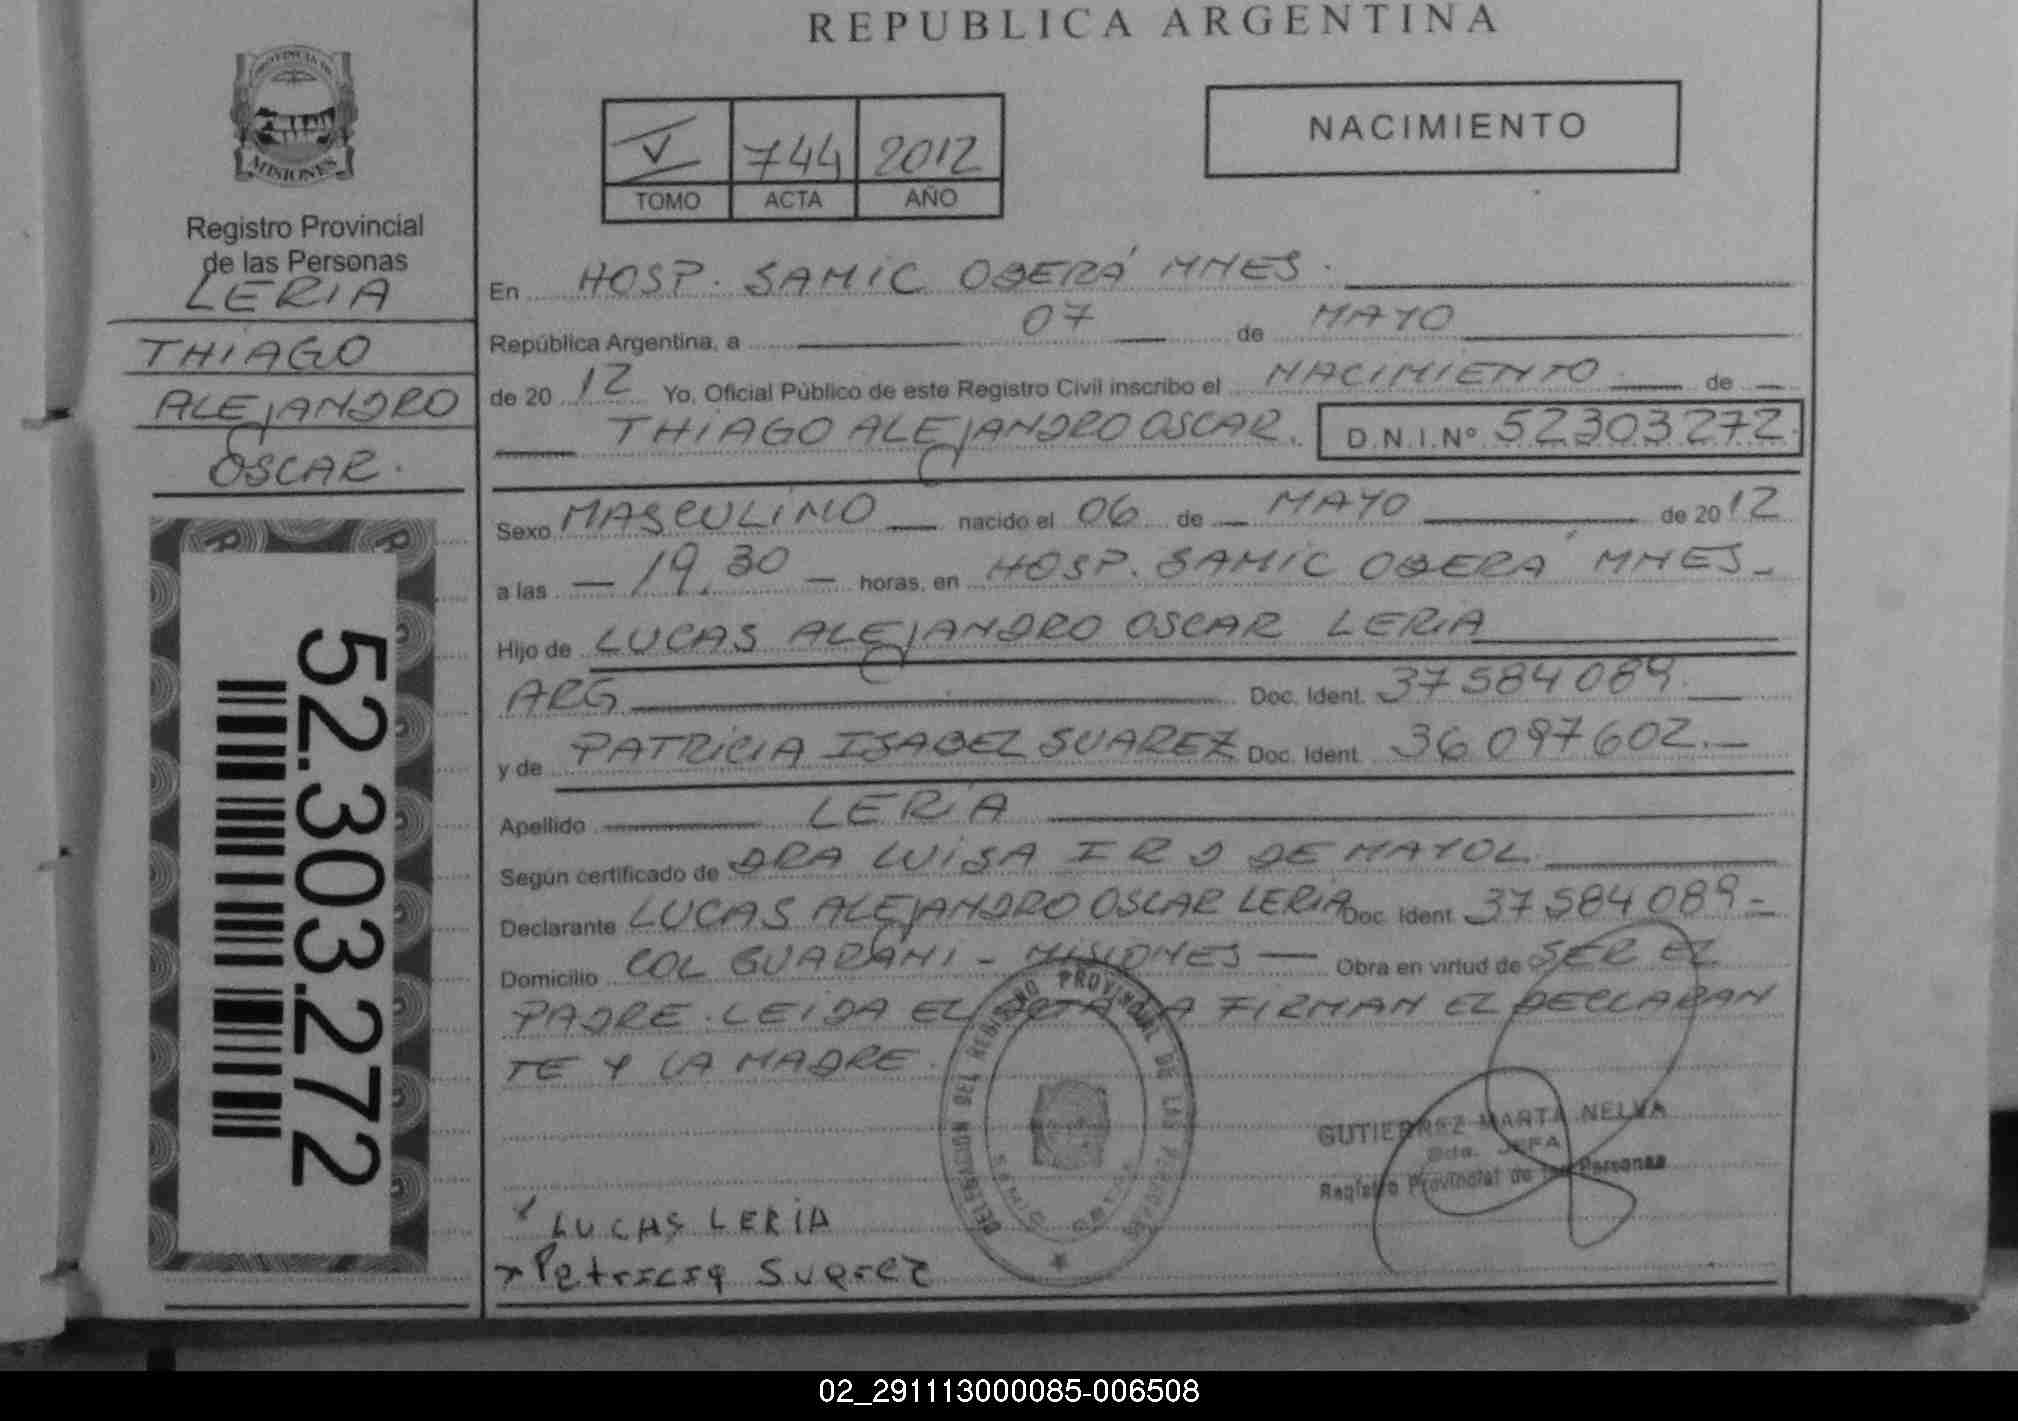 REPUBLICA ARGENTINA
PROVINCIA DE
MISIONES
Registro Provincial
de las Personas
LERIA
THIAGO
ALEJANDRO
OSCAR.
52.303.272
V 744 2012
TOMO ACTA AÑO
NACIMIENTO
En HOSP. SAMIC OBERÁ MNES.
República Argentina, a 07 de MAYO
de 20 12 Yo, Oficial Público de este Registro Civil inscribo el NACIMIENTO de
THIAGO ALEJANDRO OSCAR. D.N.I.Nº 52303272.
Sexo MASCULINO nacido el 06 de MAYO de 20 12
a las 19.30 horas, en HOSP. SAMIC OBERÁ MNES
Hijo de LUCAS ALEJANDRO OSCAR LERIA
ARG Doc. Ident. 37584089.
y de PATRICIA ISABEL SUAREZ Doc. Ident. 36097602.
Apellido LERIA
Según certificado de DRA LUISA IRD DE MAYOL
Declarante LUCAS ALEJANDRO OSCAR LERIA Doc. Ident. 37584089
Domicilio COL GUARANI - MISIONES Obra en virtud de SER EL
PADRE. LEIDA EL ACTA LA FIRMAN EL DECLARAN
TE Y LA MADRE.
DELEGACION DEL REGISTRO PROVINCIAL DE LAS PERSONAS
GUTIERREZ MARTA NELVA
JEFA
Registro Provincial de las Personas
LUCAS LERIA
Patricia Suarez
02_291113000085-006508